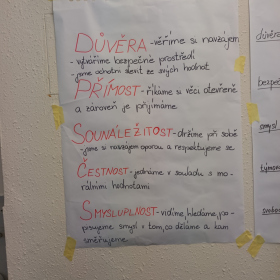 DŮVĚRA - věříme si navzájem
- vytváříme bezpečné prostředí
- jsme ochotni slevit ze svých hodnot
PŘÍMOST - říkáme si věci otevřeně
a zároveň je přijímáme
SOUNÁLEŽITOST - držíme při sobě
- jsme si navzájem oporou a respektujeme se
ČESTNOST - jednáme v souladu s mo-
rálními hodnotami
SMYSLUPLNOST - vidíme, hledáme, po-
pisujeme smysl v tom, co děláme a kam
směřujeme
důvěra
bezpeč
smysl
týmov